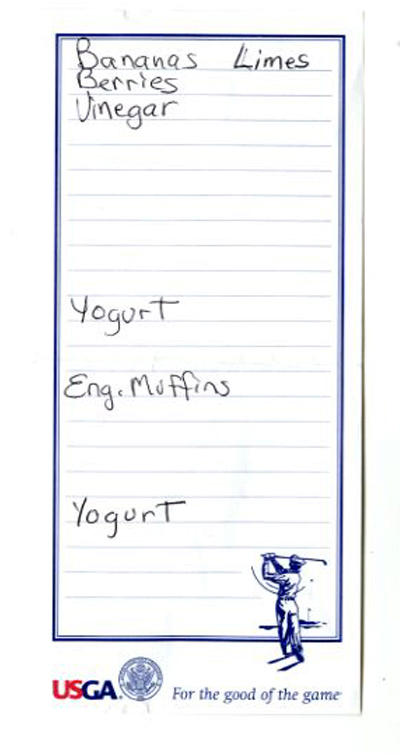 Bananas Limes
Berries
Vinegar
Yogurt
Eng. Muffins
Yogurt
USGA.
For the good of the game